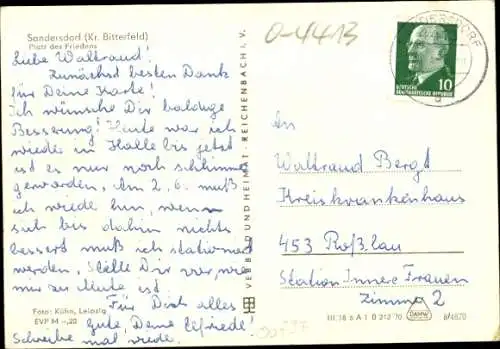 Sandersdorf (Kr. Bitterfeld)
Platz des Friedens
Liebe Waltraud!
Zunächst besten Dank
für Deine Karte!
Ich wünsche Dir baldige
Besserung! Heute war ich
wieder in Halle bis jetzt
ist es nur noch schlimmer
geworden. Am 2. 6. muß
ich wieder hin, wenn
sich bis dahin nichts
bessert muß ich stationär
werden. Stelle Dir vor, was
nur zur Heute ist!
Für Dich alles
Gute, Deine Elfriede!
Schreibe mal wieder.
Foto: Kühn, Leipzig
EVP M -,20
VERBUNDUNHEIMAT REICHENBACH I. V.
0-4413
10
DEUTSCHE
DEMOKRATISCHE REPUBLIK
An
Waltraud Bergt
Kreiskrankenhaus
453 Roßlau
Station Innere Frauen
Zimmer 2
III/18 6 A 1 0 212 70
DAMW
8/4670